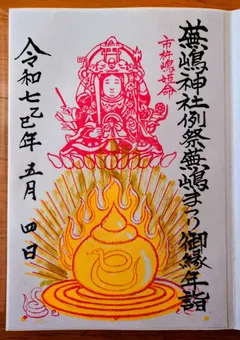 蕪嶋神社例祭蕪嶋まつり御縁年詣
市杵嶋姫命
令和七乙巳年 五月 四日